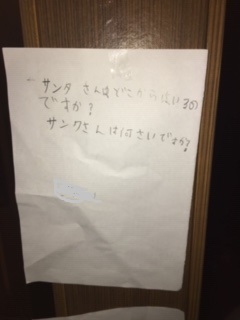 サンタさんはどこからはいるの
ですか?
サンタさんは何さいですか?